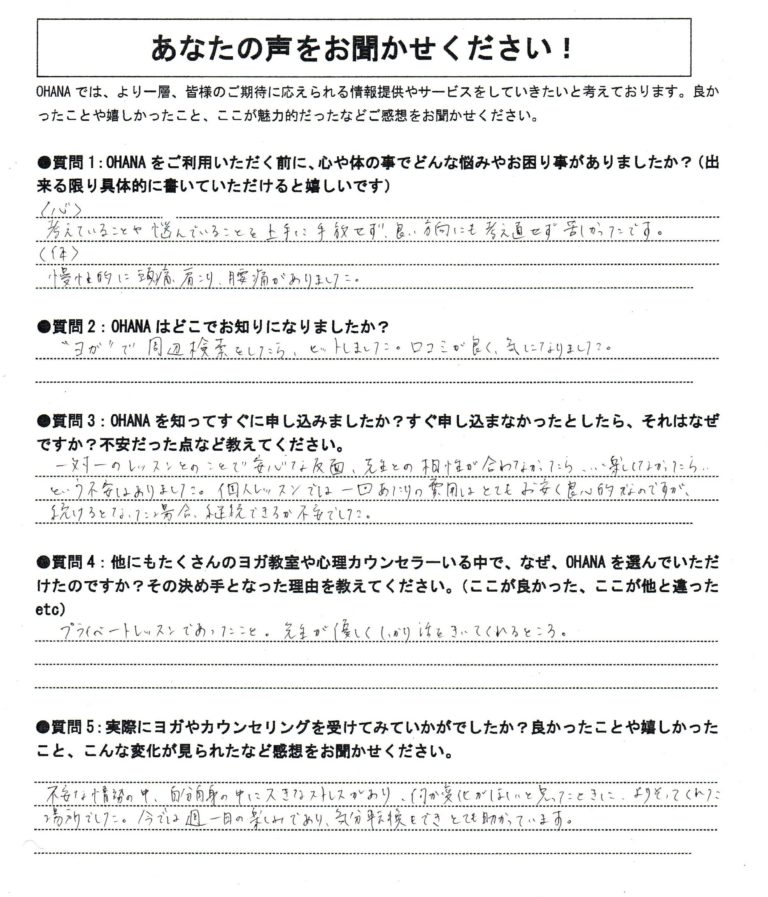 あなたの声をお聞かせください！
OHANAでは、より一層、皆様のご期待に応えられる情報提供やサービスをしていきたいと考えております。良か
ったことや嬉しかったこと、ここが魅力的だったなどご感想をお聞かせください。
●質問1：OHANAをご利用いただく前に、心や体の事でどんな悩みやお困り事がありましたか？（出
来る限り具体的に書いていただけると嬉しいです）
〈心〉
考えていることや悩んでいることを上手に手放せず、良い方向にも考え直せず苦しかったです。
〈体〉
慢性的に頭痛、肩こり、腰痛がありました。
●質問2：OHANAはどこでお知りになりましたか？
"ヨガ"で周辺検索をしたら、ヒットしました。口コミが良く、気になりました。
●質問3：OHANAを知ってすぐに申し込みましたか？すぐ申し込まなかったとしたら、それはなぜ
ですか？不安だった点など教えてください。
一対一のレッスンとのことで安心な反面、先生との相性が合わなかったら…楽しくなかったら…
という不安はありました。個人レッスンでは一回あたりの費用はとてもお安く良心的なのですが、
続けるとなった場合、継続できるか不安でした。
●質問4：他にもたくさんのヨガ教室や心理カウンセラーいる中で、なぜ、OHANAを選んでいただ
けたのですか？その決め手となった理由を教えてください。（ここが良かった、ここが他と違った
etc）
プライベートレッスンであったこと。先生が優しくしっかり話をきいてくれるところ。
●質問5：実際にヨガやカウンセリングを受けてみていかがでしたか？良かったことや嬉しかった
こと、こんな変化が見られたなど感想をお聞かせください。
不安な情勢の中、自分自身の中に大きなストレスがあり、何か変化がほしいと思ったときに、よりそってくれた
場所でした。今では週一回の楽しみであり、気分転換もできとても助かっています。